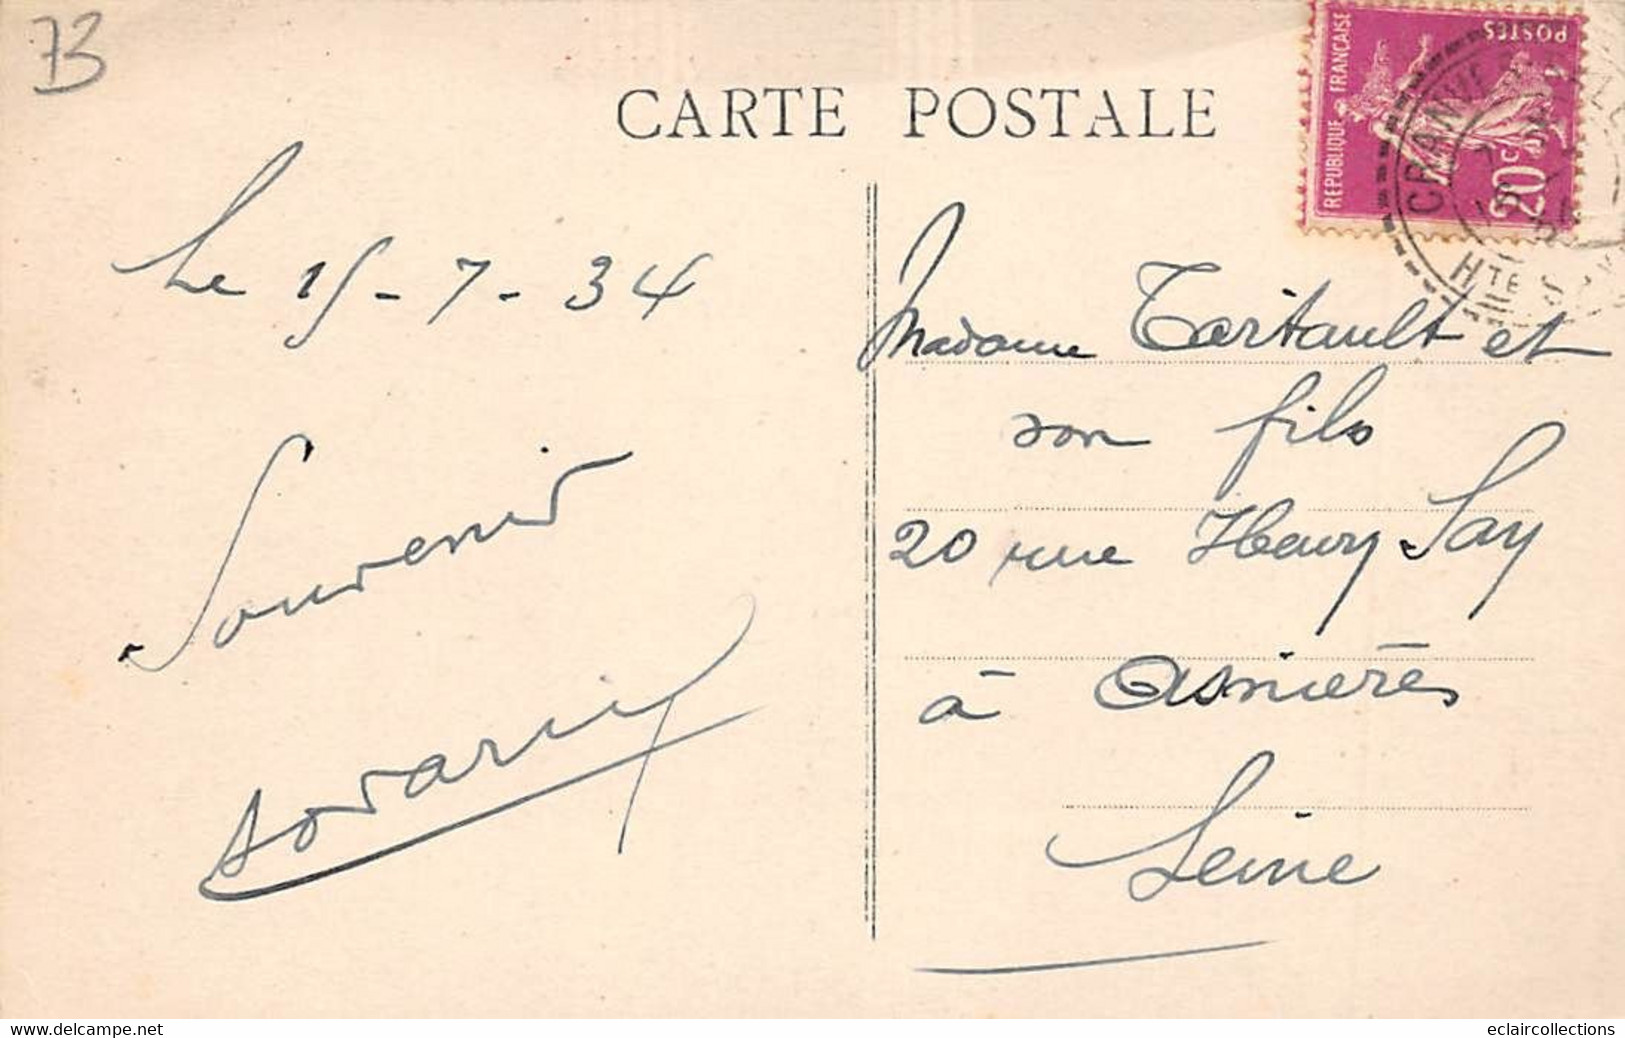 73
CARTE POSTALE
REPUBLIQUE FRANÇAISE
POSTES
20c
CRANVES
HTE S
Le 15-7-34
Souvenir
Madame Tartault et
son fils
20 rue Henry Say
à Asnières
Seine
www.delcampe.net
eclaircollections